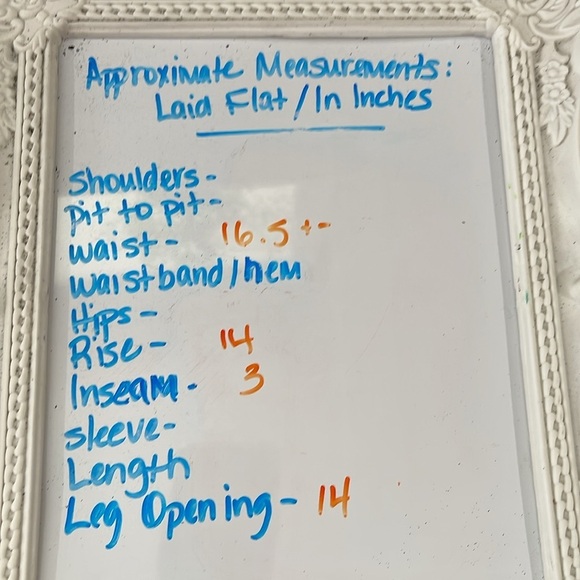 Approximate Measurements:
Laid Flat/In Inches
Shoulders-
pit to pit-
waist- 16.5 +-
waistband/hem
Hips-
Rise- 14
Inseam- 3
sleeve-
Length
Leg Opening- 14